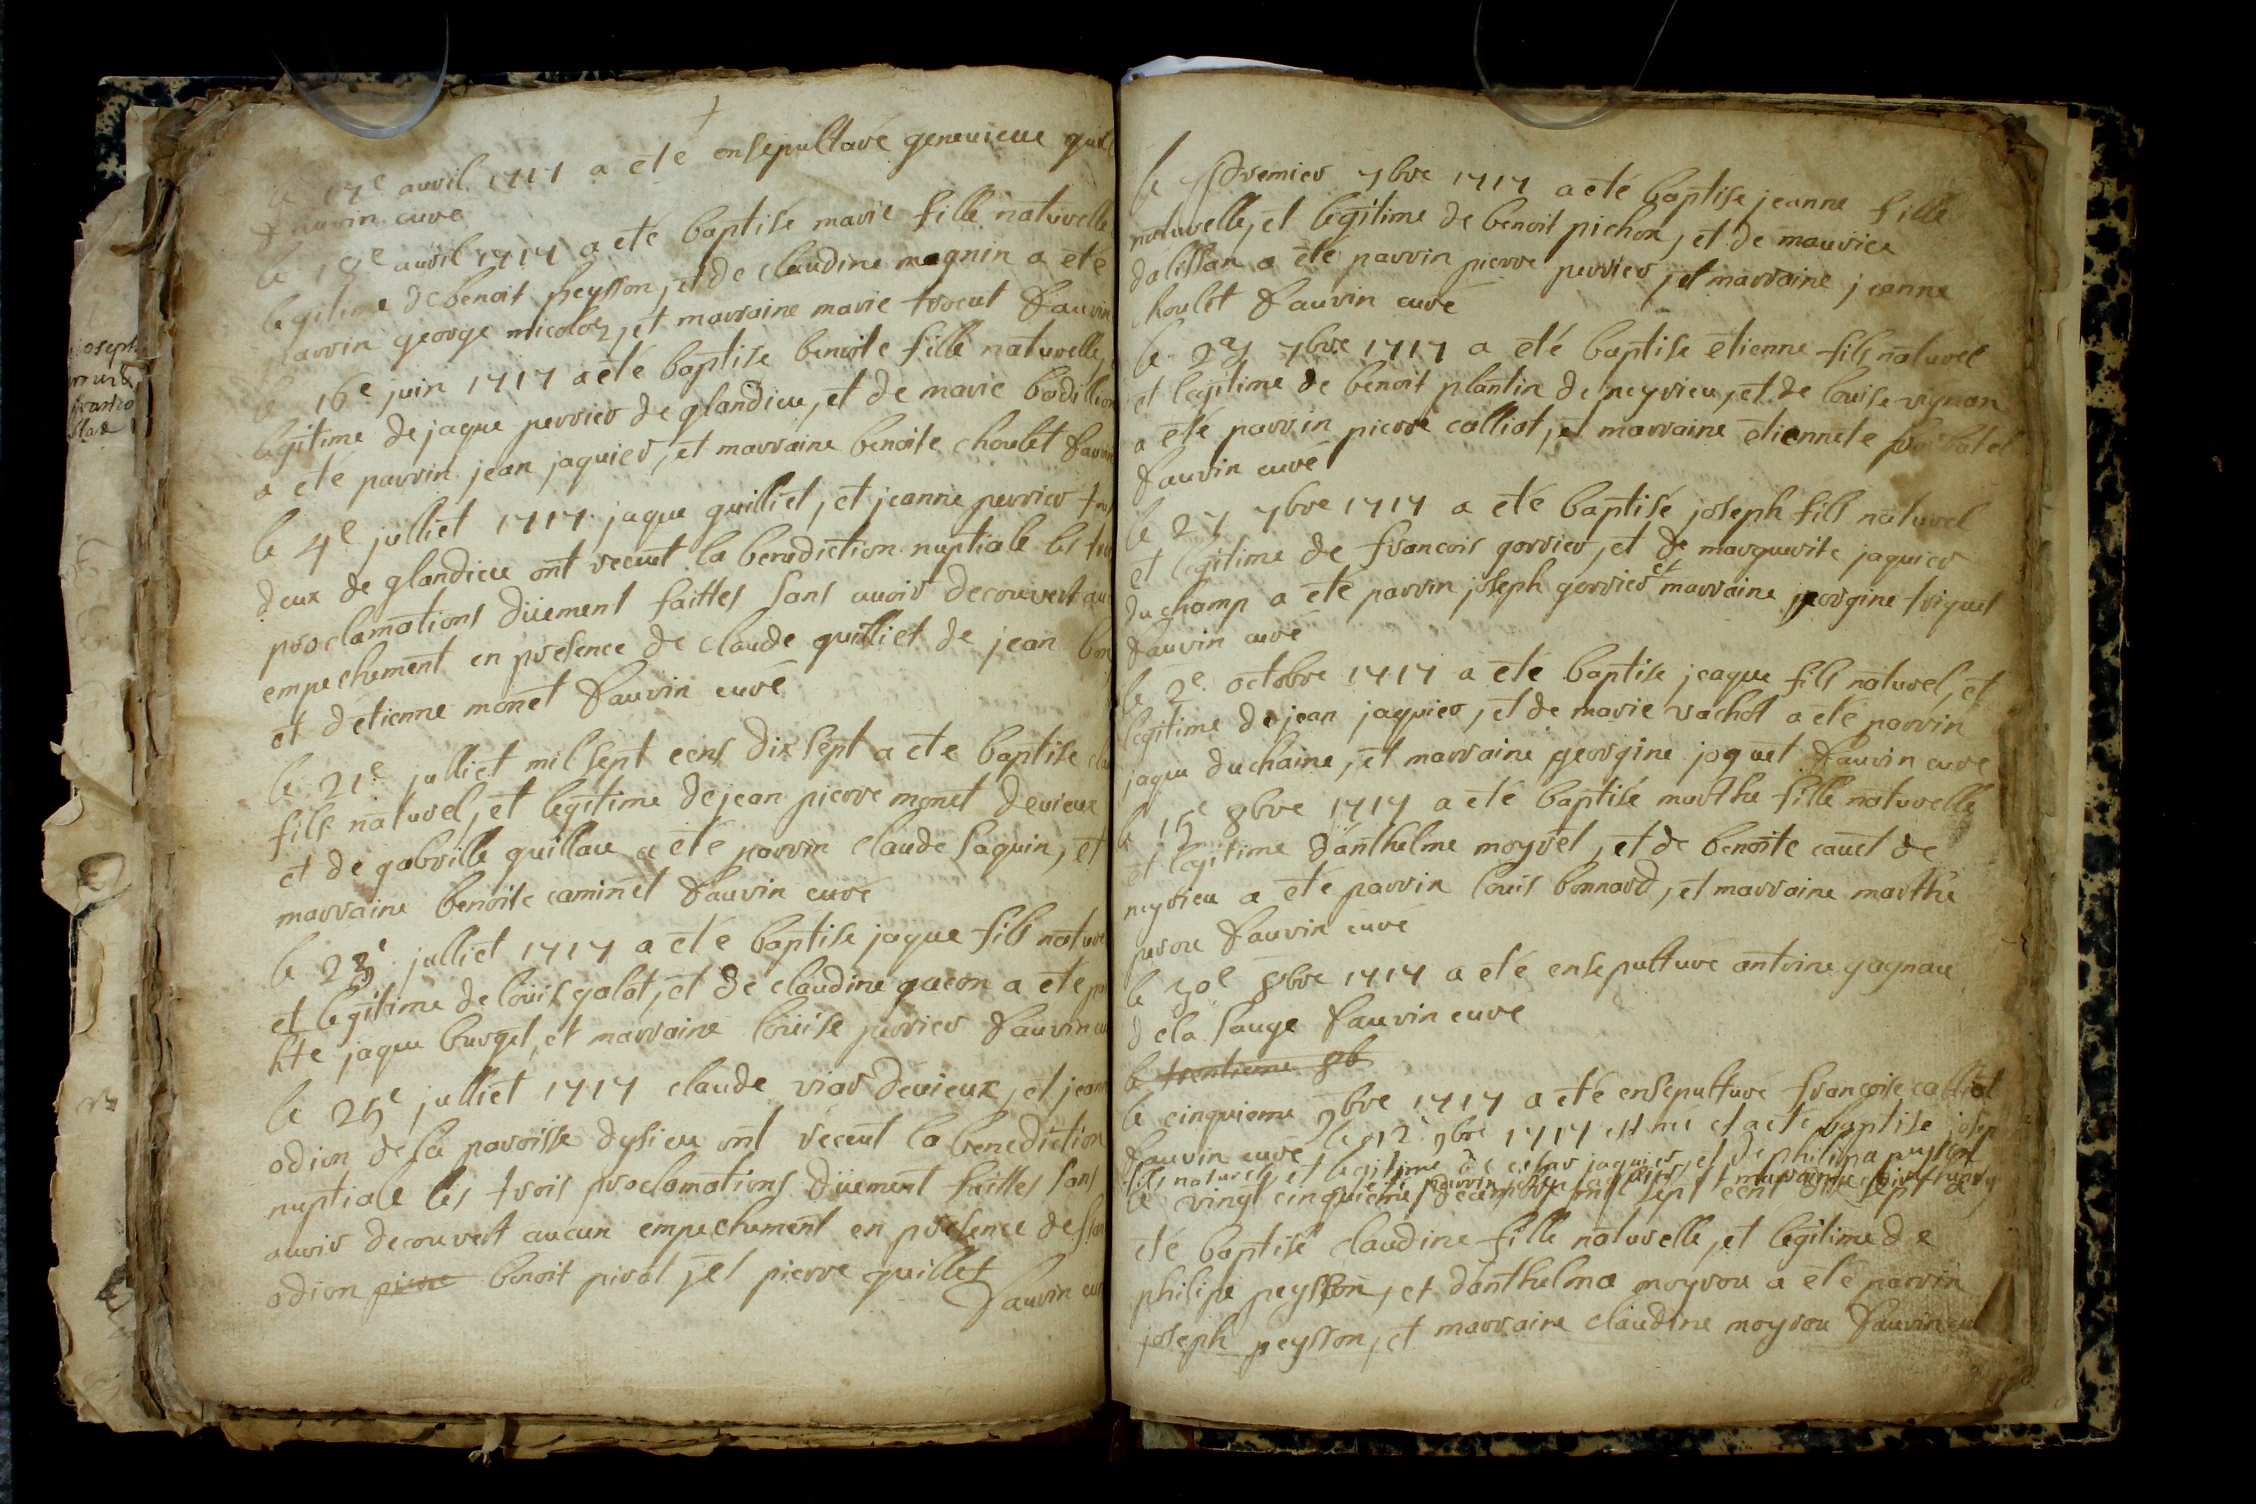 17e auril 1717 a ete ensepulturé geneuieue
fauvin curé
le 18e auril 1717 a eté baptisé marie fille naturelle
legitime de benoit peysson, et de claudine magnin a été
parrin george micoloz, et marraine marie trocut fauvin
le 16e juin 1717 a eté baptise benoite fille naturelle,
legitime de jaque perrier de glandieu, et de marie bodillion
a eté parrin jean jaquier, et marraine benoite choulet fauvin
le 4e julliet 1717 jaque guilliet, et jeanne perrier
deux de glandieu ont receut la benediction nuptiale les
proclamations düement faittes sans auoir decouvert
empechement en presence de claude guilliet de jean
et detienne monet fauvin curé
le 21e julliet mil sept cens dix sept a ete baptise
fils naturel, et legitime de jean pierre monet deuieux
et de gabrille guillau a été parrin claude saquin, et
marraine benoite caminet fauvin curé
le 23e julliet 1717 a eté baptise jaque fils
et legitime de loüis galot, et de claudine gacon a eté
jaque burget, et marraine loüise perrier fauvin
le 25e julliet 1717 claude viar deuieux, et
odion de la paroisse dysieu ont receut la benediction
nuptiale les trois proclamations düement faittes sans
auoir decouvert aucun empechement en presence de
odion pierre benoit pivot, et pierre guillet
fauvin
le premier 7bre 1717 a eté baptise jeanne fille
naturelle, et legitime de benoit pichon, et de maurice
dalissan a été parrin pierre perrier, et marraine jeanne
choulet fauvin curé
le 7bre 1717 a eté baptise etienne fils naturel
et legitime de benoit plantin de neyrieu, et de louise vignon
a été parrin pierre calliat, et marraine etiennete
fauvin curé
le 27 7bre 1717 a eté baptisé joseph fils naturel
et legitime de francois gorrier, et de marguerite jaquier
du champ a eté parrin joseph gorrier et marraine georgine triquet
fauvin curé
le 2e octobre 1717 a été baptise jeaque fils naturel, et
legitime de jean jaquier, et de marie vachot a eté parrin
jaque duchaine, et marraine georgine jaquet fauvin curé
le 15e 8bre 1717 a eté baptisé marthe fille naturelle
et legitime danthelme moyret, et de benoite cauet de
neyrieu a eté parrin louis bonnard, et marraine marthe
fauvin curé
le 30e 8bre 1717 a eté ensepulturé antoine gagnau
de la sauge fauvin curé
le trentieme 8b
le cinquieme 9bre 1717 a eté ensepulturé francoise calliat
fauvin curé le 12e 9bre 1717 est né et a eté baptise
fils naturel, et legitime de jaquier, et de philipa
le vingt cinquieme decembre mil sept cent dix sept a
eté baptisé claudine fille naturelle, et legitime de
philipe peysson, et danthelma moyrou a été parrin
joseph peysson, et marraine claudine moyrou fauvin